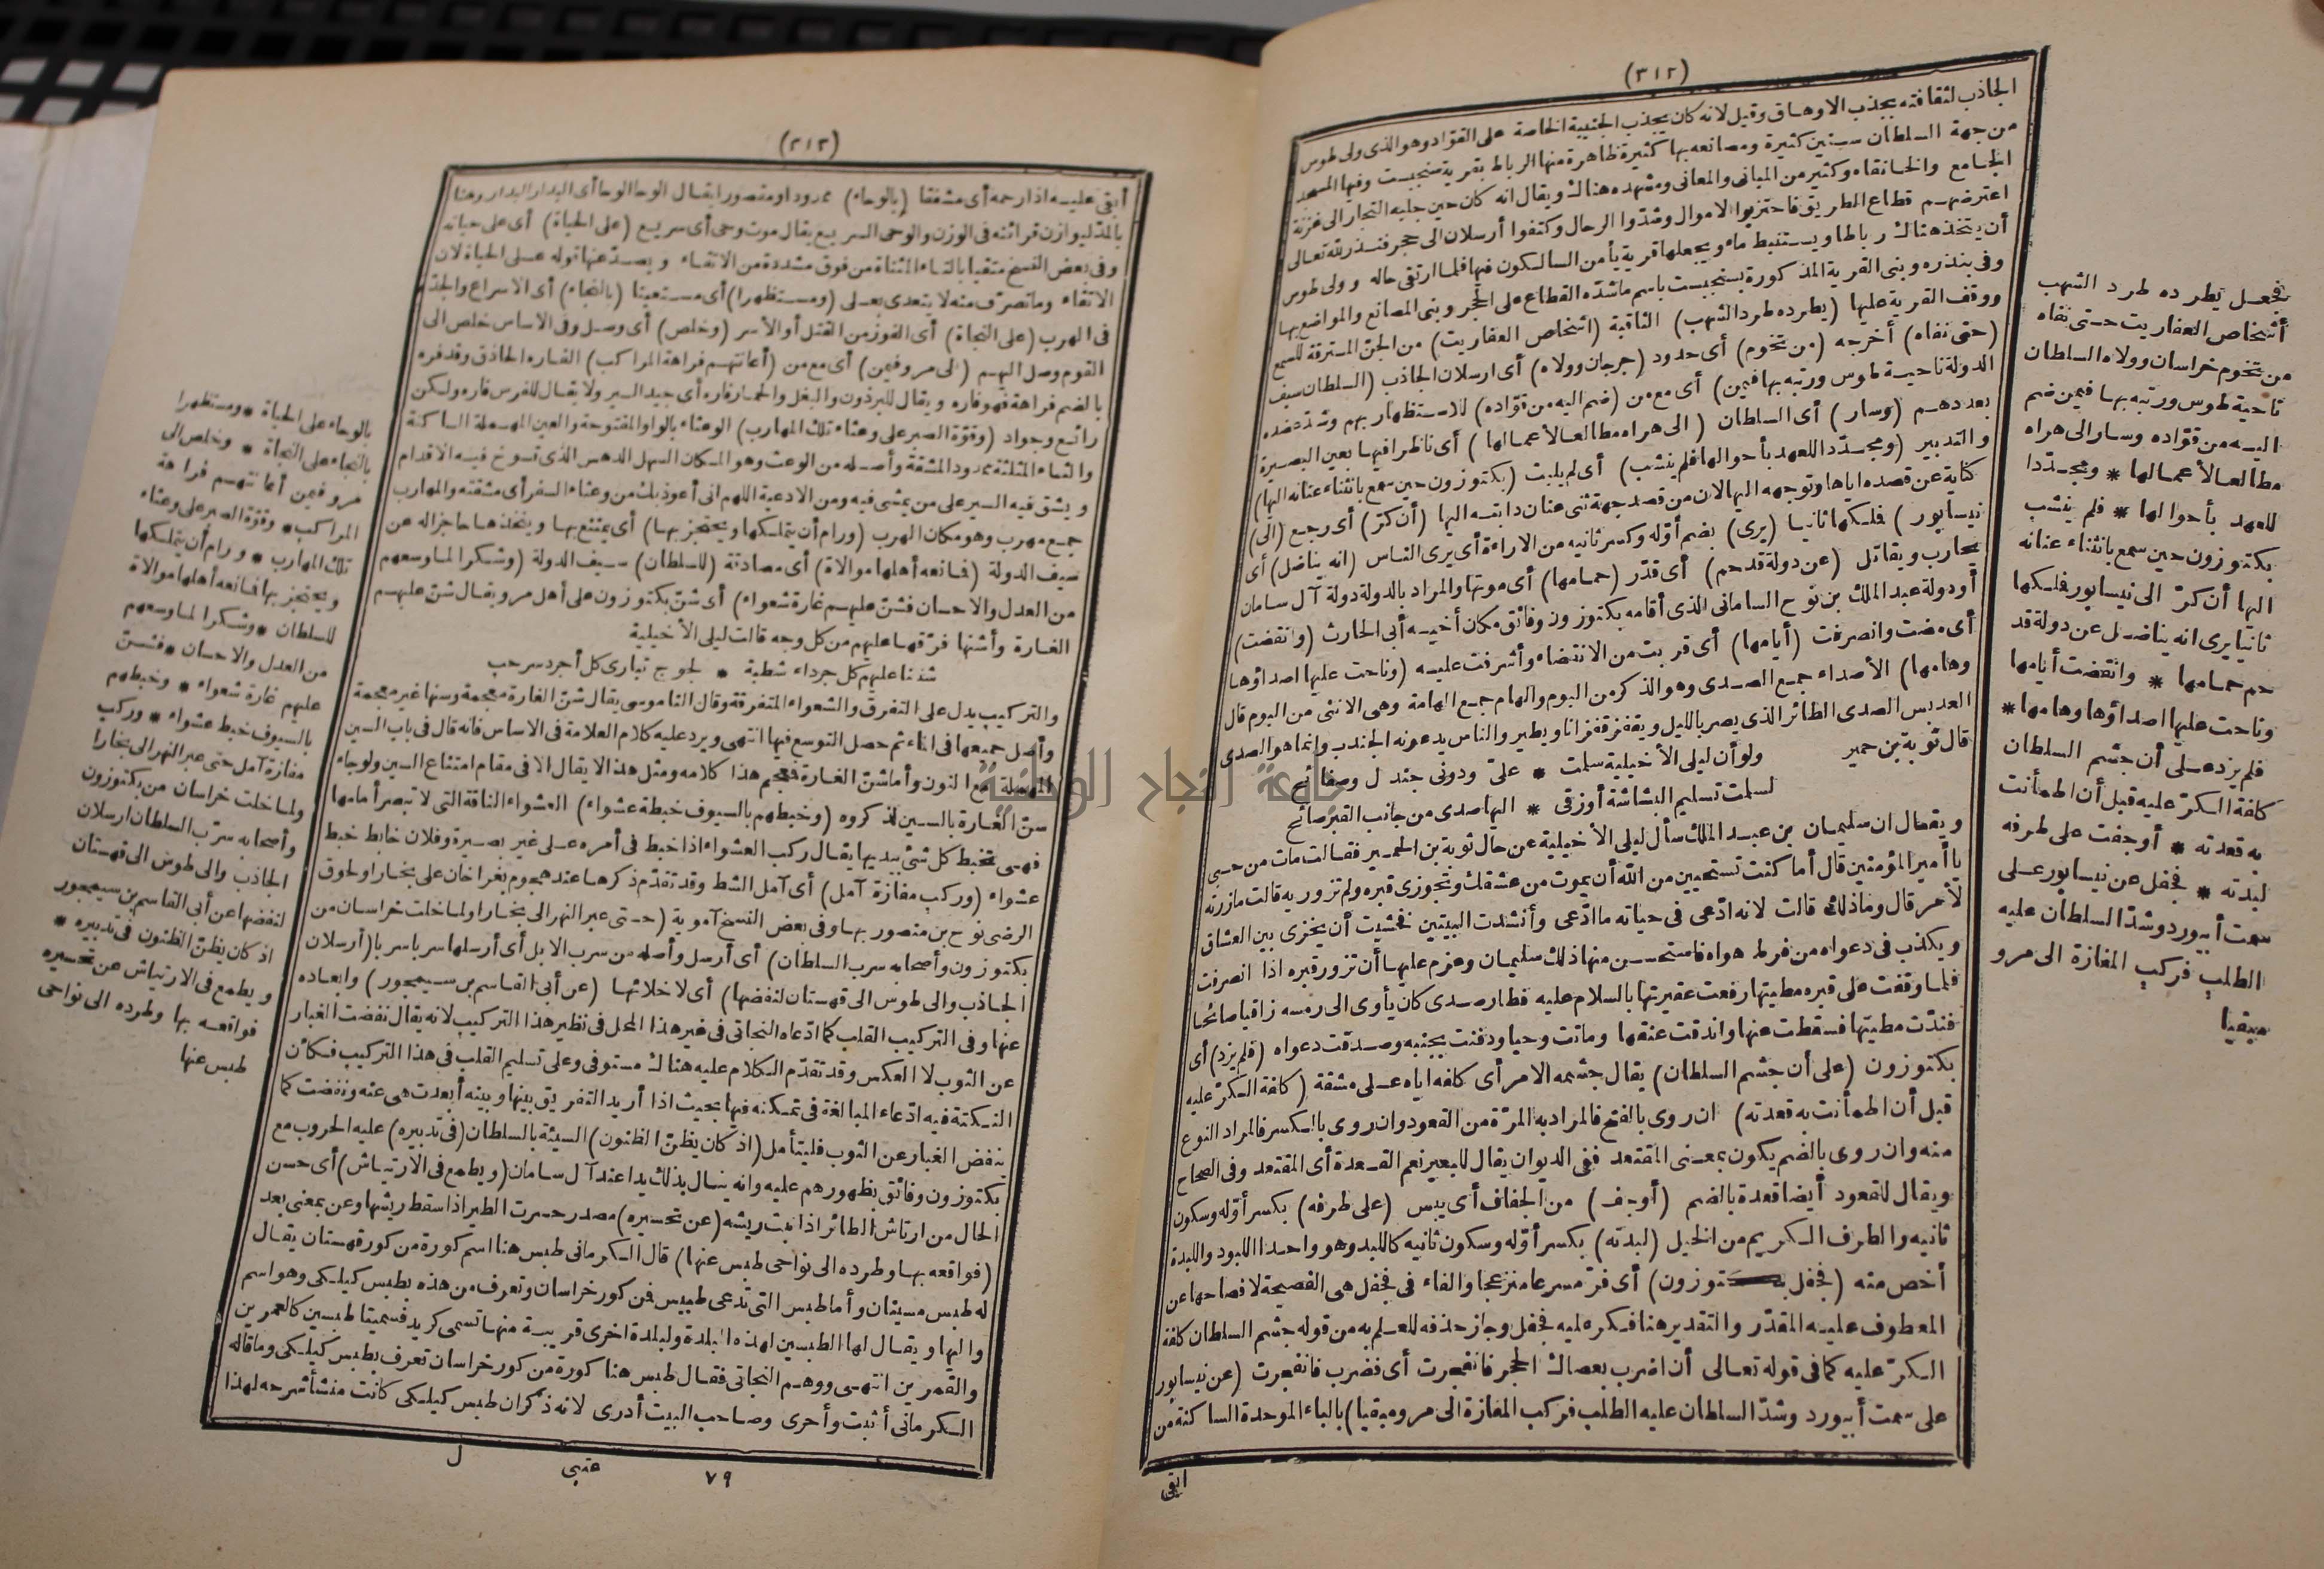 (٣١٢)
الجاذب لثقافته بجذب الاوهاق وقيل لانه كان يجذب الجنيبة الخاصة على القواد وهو الذى ولى طوس
من جهة السلطان سنين كثيرة ومصانعه بها كثيرة ظاهرة منها الرباط بقرية سنجبست وفيها المسجد
الجامع والخانقاه وكثير من المبانى والمعانى ومشهده هناك ويقال انه كان حين جلبه التجار الى غزنة
اعترضهم قطاع الطريق فاحتزبوا الاموال وشدّوا الرحال وكتفوا أرسلان الى حجر فنذر لله تعالى
أن يتخذ هناك رباطا ويستنبط ماء ويجعلها قرية يأمن السالكون فيها فلما ارتقى حاله وولى طوس
وفى بنذره وبنى القرية المذكورة بسنجبست باسم ماشدّه القطاع على الحجر وبنى المصانع والمواضع بها
ووقف القرية عليها (يطرده طرد الشهب) الثاقبة (اشخاص العفاريت) من الجن المسترقة للسمع
(حتى نفاه) أخرجه (من تخوم) أى حدود (جرجان وولاه) أى ارسلان الجاذب (السلطان سيف
الدولة ناحية طوس ورتبه بها فيمن) أى مع من (ضم اليه من قوّاده) للاستظهار بهم وشد عضده
بعددهم (وسار) أى السلطان (الى هراه مطالعا لأعمالها) أى ناظرا فيها بعين البصيرة
والتدبير (ومجدّدا للعهد بأحوالها فلم ينشب) أى لم يلبث (بكتوزون حين سمع بانثناء عنانه اليها)
كناية عن قصده اياها وتوجهه اليها لان من قصد جهة ثنى عنان دابته اليها (أن كرّ) أى رجع (الى
نيسابور) فملكها ثانيا (يرى) بضم أوّله وكسر ثانيه من الاراءة أى يرى الناس (انه يناضل) أى
يحارب ويقاتل (عن دولة قد حم) أى قدّر (حمامها) أى موتها والمراد بالدولة دولة آل سامان
أو دولة عبد الملك بن نوح السامانى الذى أقامه بكتوزون وفائق مكان أخيه أبى الحارث (وانقضت)
أى مضت وانصرفت (أيامها) أى قربت من الانتضاء وأشرفت عليه (وناحت عليها اصداؤها
وهامها) الأصداء جمع الصدى وهو الذكر من البوم والهام جمع الهامة وهى الانثى من البوم قال
العدبس الصدى الطائر الذى يصر بالليل ويقفز قفزانا ويطير والناس يدعونه الجندب وانما هو الصدى
قال توبة بن حمير ولو أن ليلى الأخيلية سلمت * علىّ ودونى جندل وصفائح
لسلمت تسليم البشاشة أوزقى * اليها صدى من جانب القبر صائح
ويقال ان سليمان بن عبد الملك سأل ليلى الأخيلية عن حال توبة بن الحمير فقالت مات من حبى
يا أمير المؤمنين قال أما كنت تستحيين من الله أن يموت من عشقك وتجوزى قبره ولم تزوريه قالت ما زرته
لأمر قال وما ذلك قالت لانه ادّعى فى حياته ما ادّعى وأنشدت البيتين فخشيت أن يخزى بين العشاق
ويكذب فى دعواه من فرط هواه فاستحسن منها ذلك سليمان وعزم عليها أن تزور قبره اذا انصرفت
فلما وقفت على قبره مطيتها رفعت عقيرتها بالسلام عليه فطار صدى كان يأوى الى رمسه زاقيا صائحا
فندّت مطيتها فسقطت عنها واندقت عنقها وماتت وحيا ودفنت بجنبه وصدّقت دعواه (فلم يزد) أى
بكتوزون (على أن جشم السلطان) يقال جشمه الامر أى كلفه اياه على مشقة (كلفة الكرّ عليه
قبل أن اطمأنت به قعدته) ان روى بالفتح فالمراد به المرّة من القعود وان روى بالكسر فالمراد النوع
منه وان روى بالضم يكون بمعنى المقتعد ففى الديوان يقال للبعير نعم القعدة أى المقتعد وفى الصحاح
ويقال للقعود أيضا قعدة بالضم (أوجف) من الجفاف أى يبس (على طرفه) بكسر أوّله وسكون
ثانيه والطرف الكريم من الخيل (لبدته) بكسر أوّله وسكون ثانيه كاللبد وهو واحد اللبود واللبدة
أخص منه (فجفل بكتوزون) أى فرّ مسرعا منزعجا والفاء فى فجفل هى الفصيحة لافصاحها عن
المعطوف عليه المقدّر والتقدير هنا فكر عليه فجفل وجاز حذفه للعلم به من قوله جشم السلطان كلفة
الكرّ عليه كما فى قوله تعالى أن اضرب بعصاك الحجر فانفجرت أى فضرب فانفجرت (عن نيسابور
على سمت أبيورد وشدّ السلطان عليه الطلب فركب المفازة الى مرو مبقيا) بالباء الموحدة الساكنة من
ابقى
فجعل يطرده طرد الشهب
أشخاص العفاريت حتى نفاه
من تخوم خراسان وولاه السلطان
ناحية طوس ورتبه بها فيمن ضم
اليه من قوّاده وسار الى هراه
مطالعا لأعمالها * ومجدّدا
للعهد بأحوالها * فلم ينشب
بكتوزون حين سمع بانثناء عنانه
اليها أن كرّ الى نيسابور فملكها
ثانيا يرى انه يناضل عن دولة قد
حم حمامها * وانقضت أيامها
وناحت عليها اصداؤها وهامها *
فلم يزد على أن جشم السلطان
كلفة الكرّ عليه قبل أن اطمأنت
به قعدته * أوجفت على طرفه
لبدته * فجفل عن نيسابور على
سمت أبيورد وشدّ السلطان عليه
الطلب فركب المفازة الى مرو
مبقيا
(٣١٣)
أبقى عليه اذا رحمه أى مشفقا (بالوحاء) ممدودا ومقصورا يقال الوحا الوحا أى البدار البدار وهنا
بالمدّ ليوازن قرائنه فى الوزن والوحى السريع يقال موت وحى أى سريع (على الحياة) أى على حياته
وفى بعض النسخ متقيا بالتاء المثناة من فوق مشددة من الاتقاء ويصدّ عنها قوله على الحياة لان
الاتقاء وما تصرّف منه لا يتعدى بعلى (ومستظهرا) أى مستعينا (بالنجاء) أى الاسراع والجدّ
فى الهرب (على النجاة) أى الفوز من القتل أو الأسر (وخلص) أى وصل وفى الاساس خلص الى
القوم وصل اليهم (الى مرو فيمن) أى مع من (أعانتهم فراهة المراكب) الفاره الحاذق وقد فره
بالضم فراهة فهو فاره ويقال للبرذون والبغل والحمار فاره أى جيد السير ولا يقال للفرس فاره ولكن
رائع وجواد (وقوّة الصبر على وعثاء تلك المهارب) الوعثاء بالواو المفتوحة والعين المهملة الساكنة
والثاء المثلثة ممدود المشقة وأصله من الوعث وهو المكان السهل الدهس الذى تسوخ فيه الاقدام
ويشق فيه السير على من يمشى فيه ومن الادعية اللهم انى أعوذ بك من وعثاء السفر أى مشقته والمهارب
جمع مهرب وهو مكان الهرب (ورام أن يتملكها ويحتجز بها) أى يمتنع بها ويتخذها حاجزا له عن
سيف الدولة (فمانعه أهلها موالاة) أى مصادقة (للسلطان) سيف الدولة (وشكرا لما وسعهم
من العدل والاحسان فشنّ عليهم غارة شعواء) أى شنّ بكتوزون على أهل مرو يقال شنّ عليهم
الغارة وأشنها فرّقها عليهم من كل وجه قالت ليلى الأخيلية
شننا عليهم كل جرداء شطبة * لجوج تبارى كل أجرد سرحب
والتركيب يدل على التفرق والشعواء المتفرقة وقال الناموسى يقال شنّ الغارة معجمة وسنها غير معجمة
وأصل جميعها فى الماء ثم حصل التوسع فيها انتهى ويرد عليه كلام العلامة فى الاساس فانه قال فى باب السين
المهملة مع النون وأما شنّ الغارة فمعجم هذا كلامه ومثل هذا لا يقال الا فى مقام امتناع السين ولو جاء
سنّ الغارة بالسين لذكروه (وخبطهم بالسيوف خبطة عشواء) العشواء الناقة التى لا تبصر أمامها
فهى تخبط كل شئ بيديها يقال ركب العشواء اذا خبط فى أمره على غير بصيرة وفلان خابط خبط
عشواء (وركب مفازة آمل) أى آمل الشط وقد تقدّم ذكرها عند هجوم بغراخان على بخارا ولحوق
الرضى نوح بن منصور بها وفى بعض النسخ آموية (حتى عبر النهر الى بخارا ولما خلت خراسان من
بكتوزون وأصحابه سرب السلطان) أى أرسل وأصله من سرب الابل أى أرسلها سربا سربا (أرسلان
الجاذب والى طوس الى قهستان لنفضها) أى لاخلائها (عن أبى القاسم بن سيمجور) وابعاده
عنها وفى التركيب القلب كما ادّعاه النجاتى فى غير هذا المحل فى نظير هذا التركيب لانه يقال نفضت الغبار
عن الثوب لا العكس وقد تقدّم الكلام عليه هناك مستوفى وعلى تسليم القلب فى هذا التركيب فكأن
النكتة فيه ادّعاء المبالغة فى تمكنه فيها بحيث اذا أريد التفريق بينها وبينه أبعدت هى عنه ونفضت كما
ينفض الغبار عن الثوب فليتأمل (اذ كان يظنّ الظنون) السيئة بالسلطان (فى تدبيره) عليه الحروب مع
بكتوزون وفائق بظهورهم عليه وانه ينال بذلك يدا عند آل سامان (ويطمع فى الارتياش) أى حسن
الحال من ارتاش الطائر اذا نبت ريشه (عن تحسيره) مصدر حسرت الطير اذا سقط ريشها وعن بمعنى بعد
(فواقعه بها وطرده الى نواحى طبس عنها) قال الكرمانى طبس هنا اسم كورة من كور قهستان يقال
له طبس مسينان وأما طبس التى تدعى طبيس فمن كور خراسان وتعرف من هذه بطبس كيلكى وهو اسم
واليها ويقال لها الطبسين لهذه البلدة ولبلدة اخرى قريبة منها تسمى كريد فسميتا طبسين كالعمرين
والقمرين انتهى ووهم النجاتى فقال طبس هنا كورة من كور خراسان تعرف بطبس كيلكى وما قاله
الكرمانى أثبت وأحرى وصاحب البيت أدرى لانه ذكر ان طبس كيلكى كانت منشأ شرحه لهذا
٧٩ عتبى ل
بالوحاء على الحياة * ومستظهرا
بالنجاء على النجاة * وخلص الى
مرو فيمن أعانتهم فراهة
المراكب * وقوّة الصبر على وعثاء
تلك المهارب * ورام أن يتملكها
ويحتجز بها فمانعه أهلها موالاة
للسلطان * وشكرا لما وسعهم
من العدل والاحسان * فشنّ
عليهم غارة شعواء * وخبطهم
بالسيوف خبط عشواء * وركب
مفازة آمل حتى عبر النهر الى بخارا
ولما خلت خراسان من بكتوزون
وأصحابه سرّب السلطان ارسلان
الجاذب والى طوس الى قهستان
لنفضها عن أبى القاسم بن سيمجور
اذ كان يظنّ الظنون فى تدبيره *
ويطمع فى الارتياش عن تحسيره
فواقعه بها وطرده الى نواحى
طبس عنها
جامعة النجاح الوطنية